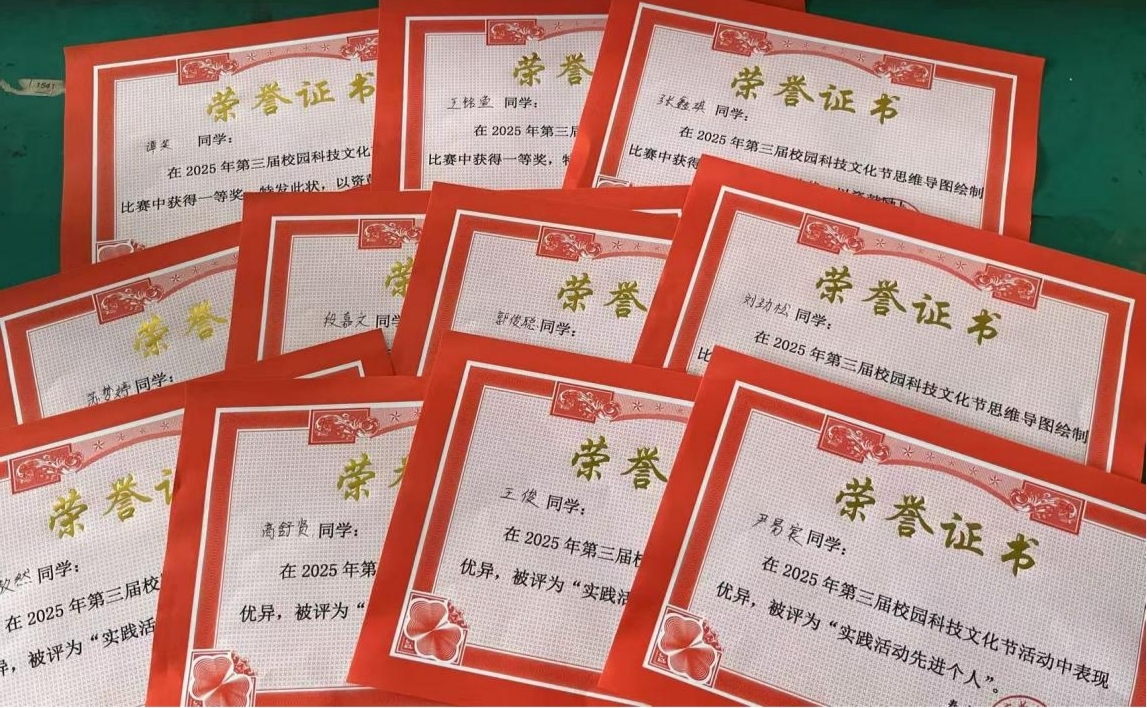 1541
荣誉证书
谭笑 同学：
在 2025 年第三届校园科技文化
比赛中获得一等奖，特发此状，以资
荣誉
同学：
在 2025 年第三届
比赛中获得一等奖，特
荣誉证书
张鑫琪 同学：
在 2025 年第三届校园科技文化节思维导图绘制
比赛中获得
以资鼓励
荣誉
苏梦婷同学：
荣
段嘉文 同学
荣誉
郭俊聪同学：
荣誉证书
刘劲松 同学：
在 2025 年第三届校园科技文化节思维导图绘制
比
荣誉证
然 同学：
在 2025 年第三届校
异，被评为“实践活
荣誉
高舒贤 同学：
在 2025 年第
优异，被评为“
荣誉
王俊 同学：
在 2025 年第三届校
优异，被评为“实践活
荣誉证书
尹易宸同学：
在 2025 年第三届校园科技文化节活动中表现
优异，被评为“实践活动先进个人”。